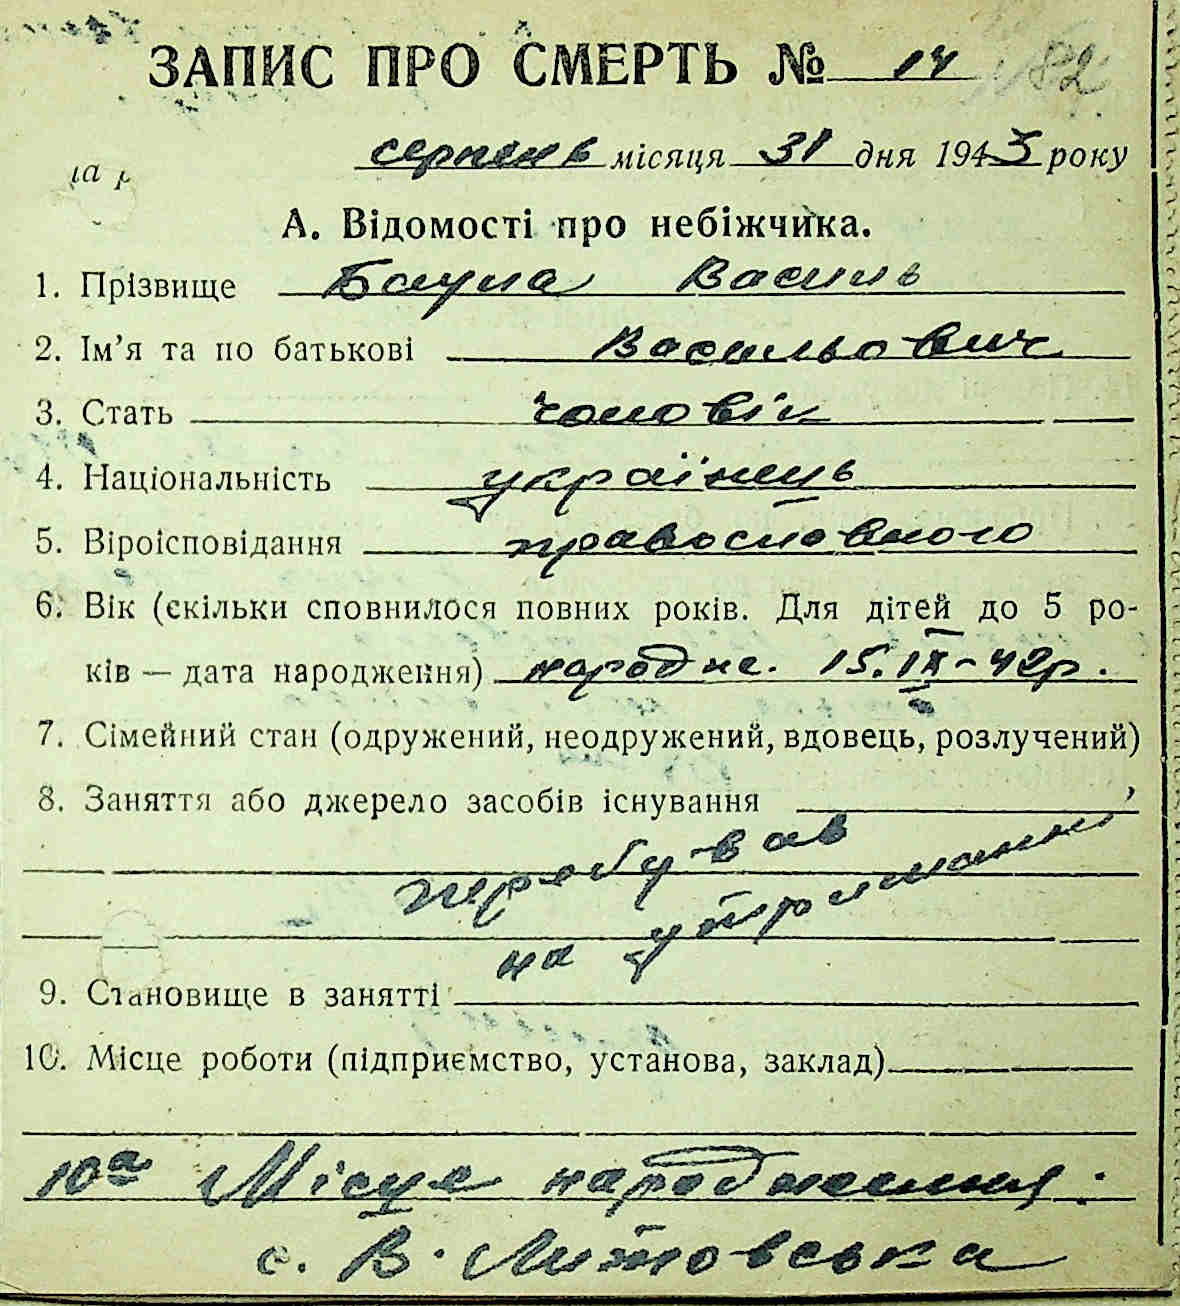 ЗАПИС ПРО СМЕРТЬ № 14 182
серпень місяця 31 дня 1943 року
А. Відомості про небіжчика.
1. Прізвище Баула Василь
2. Ім’я та по батькові Васильович
3. Стать чоловік
4. Національність українець
5. Віроісповідання православного
6. Вік (скільки сповнилося повних років. Для дітей до 5 ро-
ків — дата народження) народже. 15.IX-42р.
7. Сімейний стан (одружений, неодружений, вдовець, розлучений)
8. Заняття або джерело засобів існування
перебував
на утриманні
9. Становище в занятті
10. Місце роботи (підприємство, установа, заклад)
10а Місце народження:
с. В. Литовська